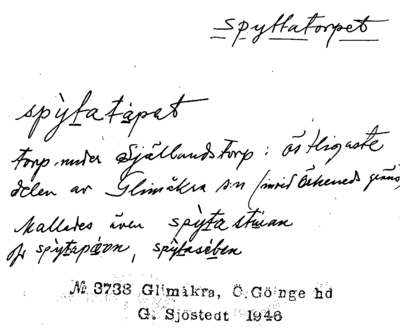 Spyttatorpet
spỳtatąpet
torp under Sjöllandstorp i östligaste
delen av Glimåkra s:n (invid Örkeneds gräns)
Kallades även spỳta stúan
jfr spỳtapávn, spỳtasében
№ 3738 Glimåkra, Ö.Göinge hd
G. Sjöstedt 1946